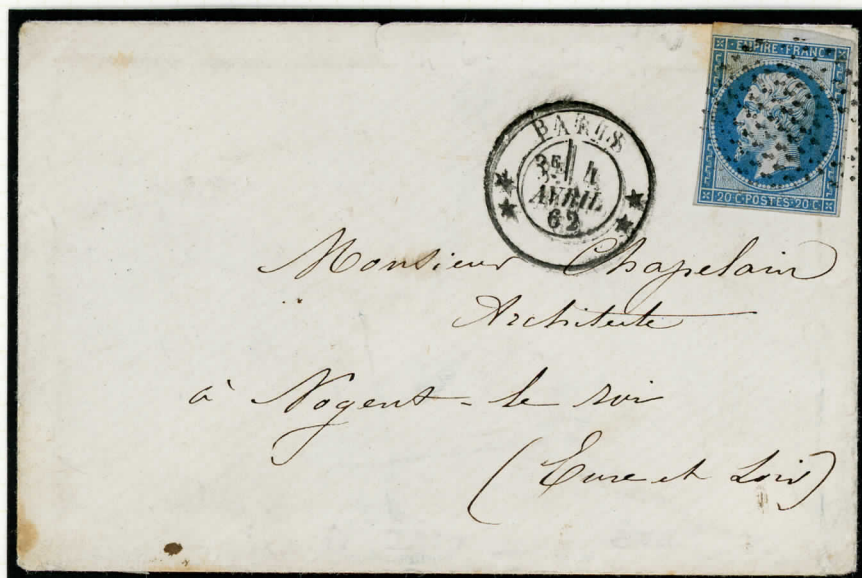 EMPIRE·FRANC
20·C·POSTES·20·C·
PARIS
3E 4
AVRIL
62
Monsieur Chapelain
Architecte
à Nogent-le roi
(Eure et Loir)